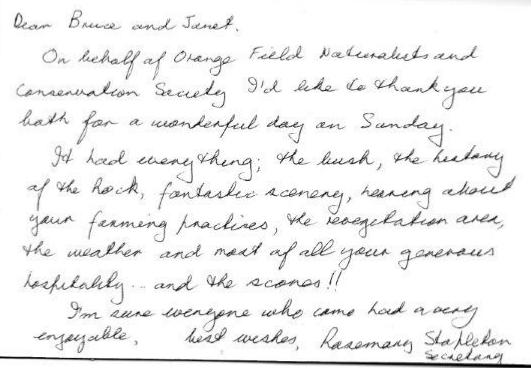 Dear Bruce and Janet,
On behalf of Orange Field Naturalists and
Conservation Society I'd like to thank you
both for a wonderful day on Sunday.
It had everything; the bush, the history
of the rock, fantastic scenery, hearing about
your farming practices, the revegetation area,
the weather and most of all your generous
hospitality... and the scones!!
I'm sure everyone who came had a very
enjoyable, best wishes, Rosemary Stapleton
Secretary